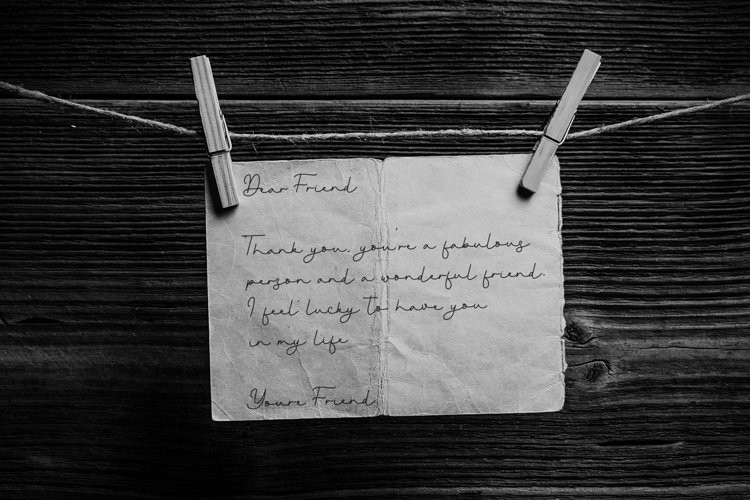 Dear Friend
Thank you. you're a fabulous
person and a wonderful friend.
I feel lucky to have you
in my life
Youre Friend